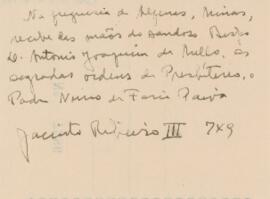 Na freguezia de Alfenas, Minas,
recebe das mãos do saudoso Bispo
D. Antonio Joaquim de Mello, as
sagradas ordens de Presbitero, o
Padre Nuno de Faria Paiva
Jacinto Ribeiro III 749